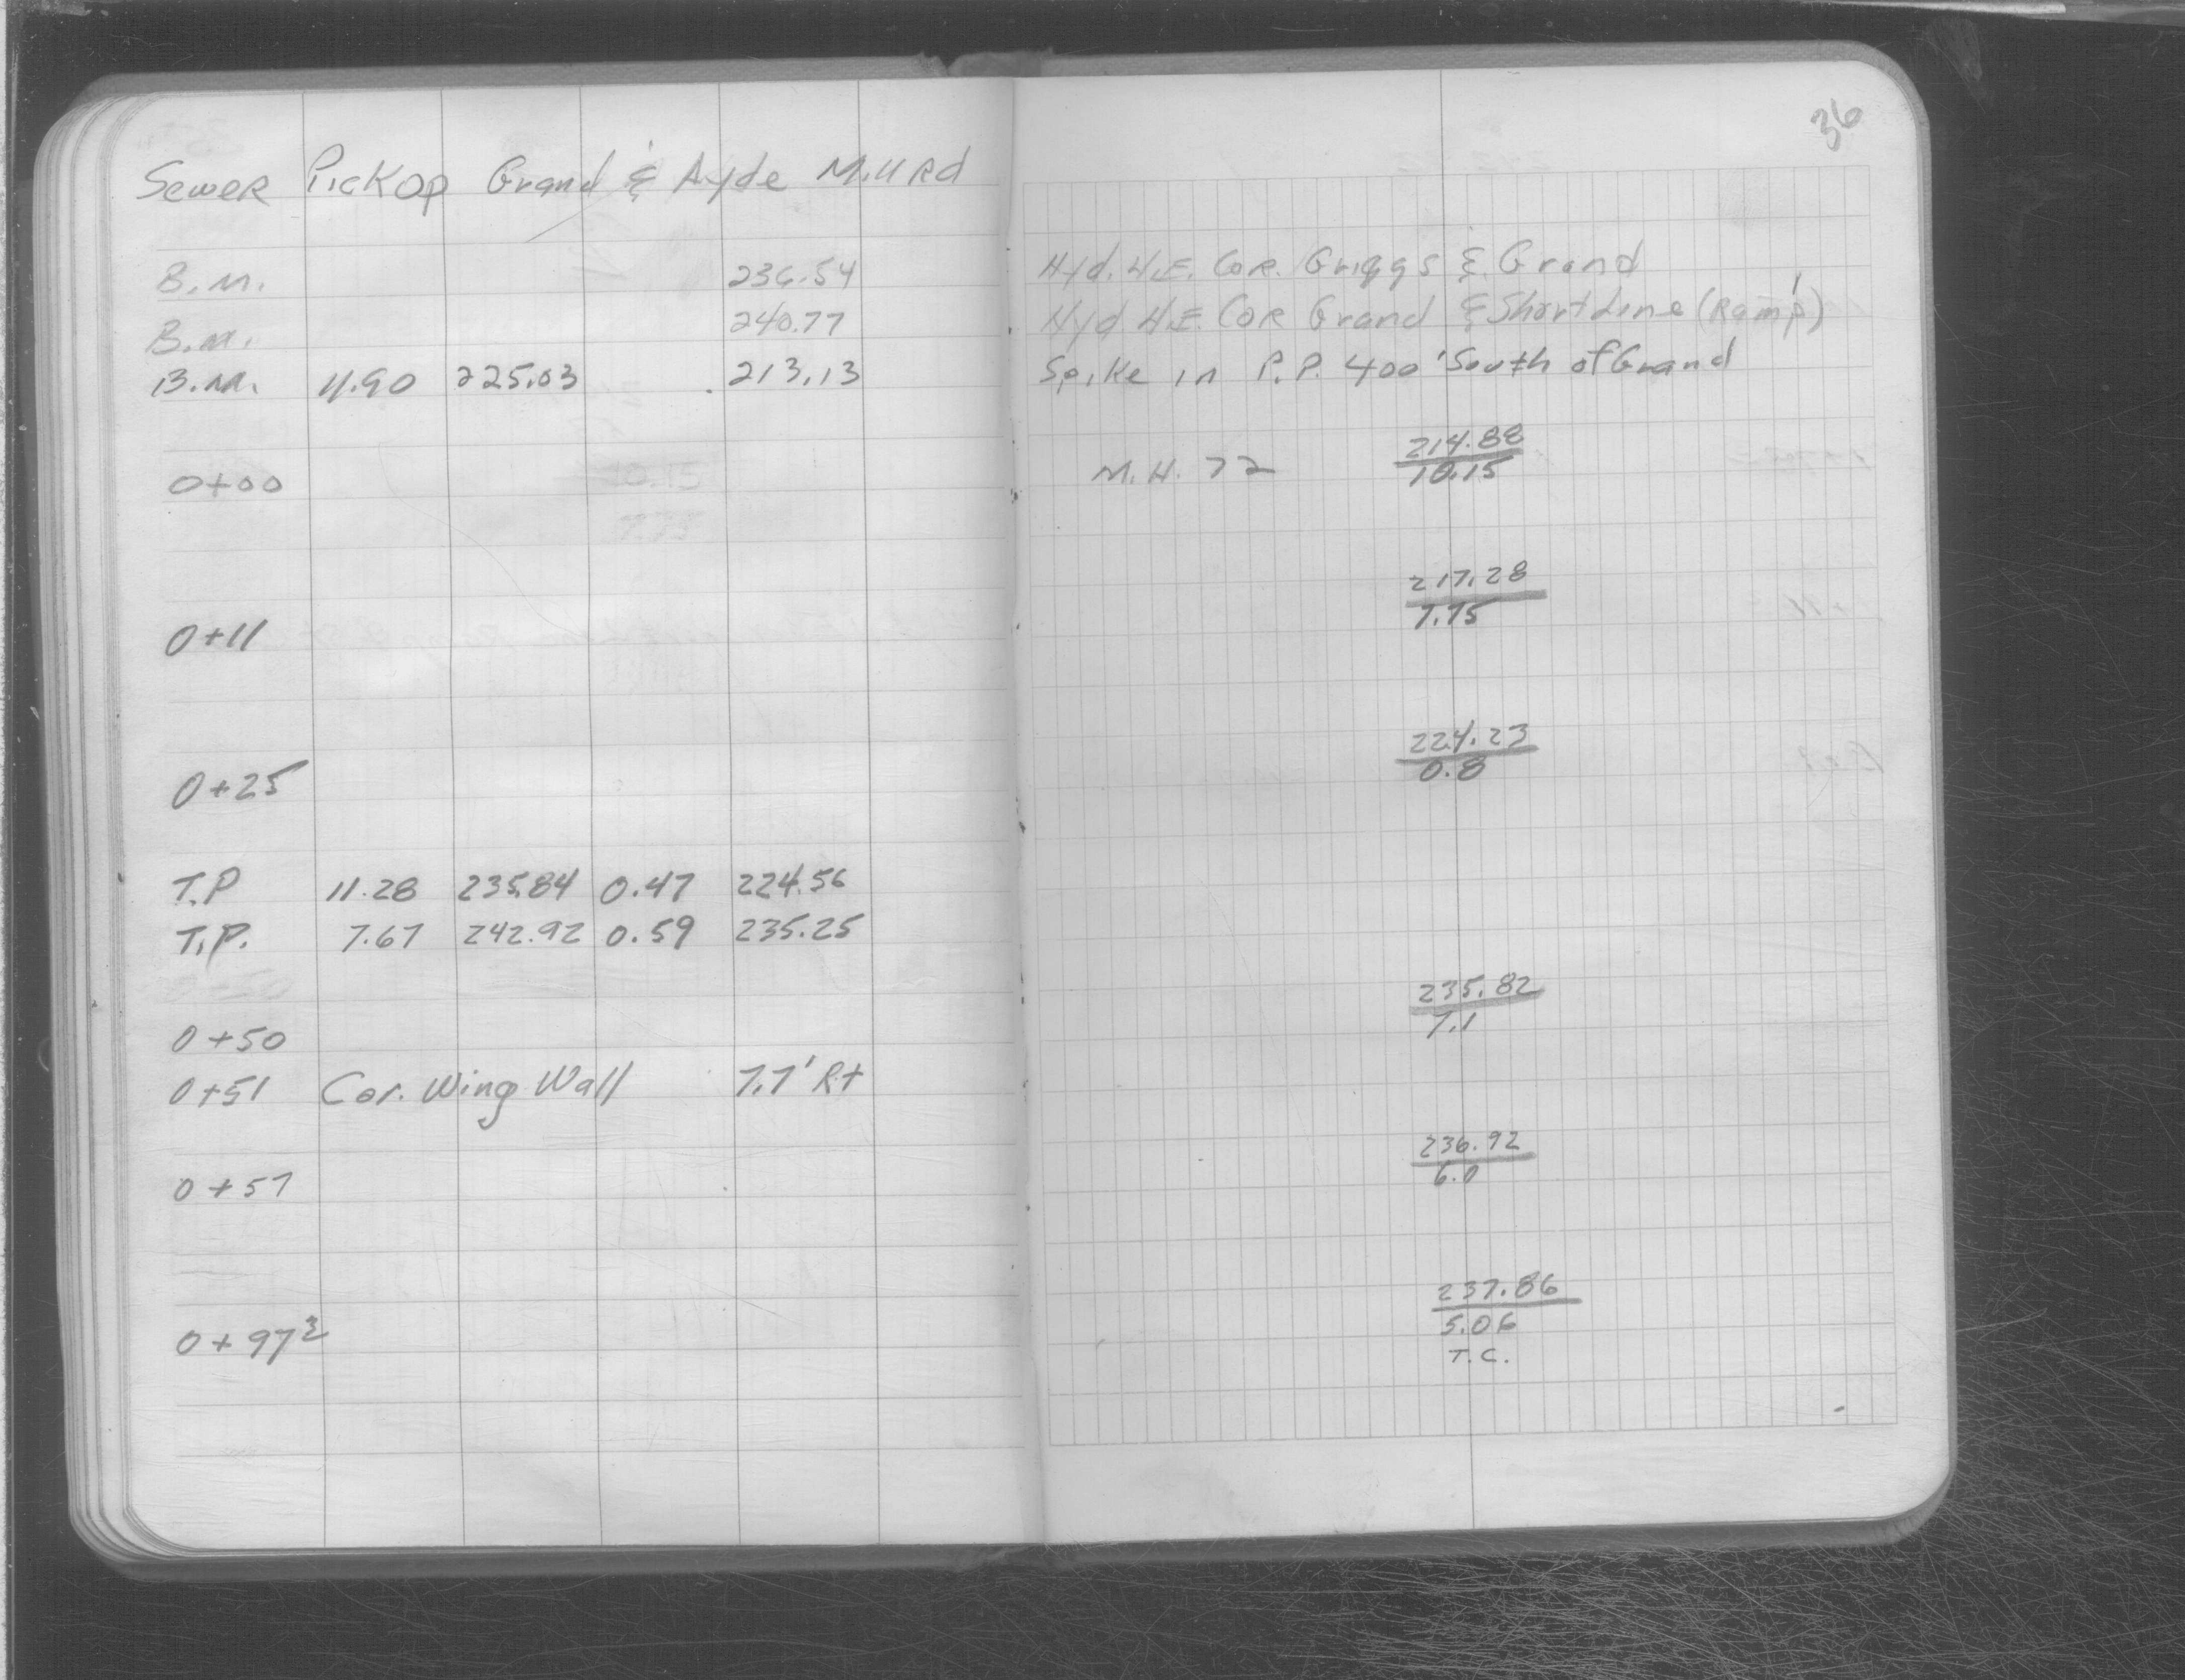 36
Sewer Pickop Grand & Ayde Mill Rd
B.M. 236.54 Hyd. N.E. Cor. Griggs & Grand
B.M. 240.77 Hyd N.E. Cor Grand & Short Line (Ramp)
B.M. 11.90 225.03 213.13 Spike in P.P. 400' South of Grand
214.88
0+00 M.H. 72 10.15
217.28
0+11 7.75
224.23
0+25 0.8
T.P 11.28 235.84 0.47 224.56
T.P. 7.67 242.92 0.59 235.25
235.82
0+50 7.1
0+51 Cor. Wing Wall 7.7' Rt
236.92
0+57 6.0
237.86
0+97³ 5.06
T.C.